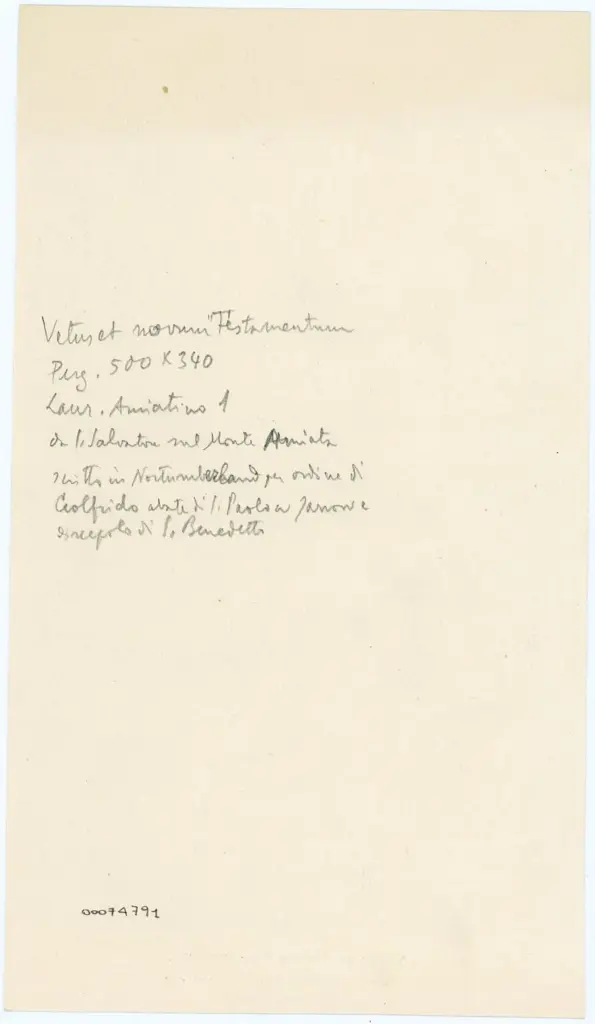 Vetus et novum "Testamentum
Perg. 500 x 340
Laur. Amiatino 1
da S. Salvatore sul Monte Amiata
scritto in Nortumberland per ordine di
Ceolfrido abate di S. Paolo a Jarrow e
discepolo di S. Benedetto
00074791